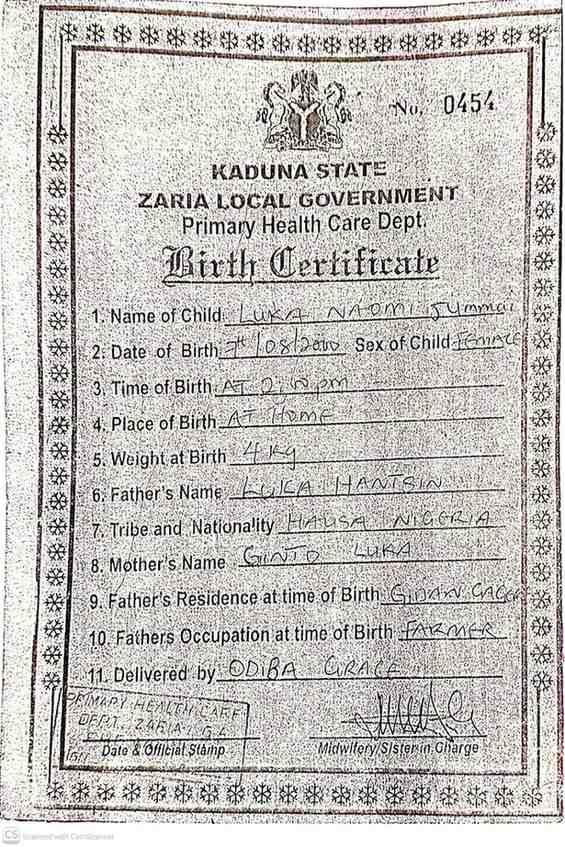 No. 0454
KADUNA STATE
ZARIA LOCAL GOVERNMENT
Primary Health Care Dept.
Birth Certificate
1. Name of Child LUKA NAOMI Jummai
2. Date of Birth 7th /08/2000 Sex of Child FEMALE
3. Time of Birth AT 2:00pm
4. Place of Birth AT HOME
5. Weight at Birth 4kg
6. Father's Name LUKA HANTSIN
7. Tribe and Nationality HAUSA NIGERIA
8. Mother's Name GINTO LUKA
9. Father's Residence at time of Birth GIDAN
10. Fathers Occupation at time of Birth FARMER
11. Delivered by ODIBA GRACE
PRIMARY HEALTH CARE
DEPT. ZARIA
Date & Official Stamp Midwifery/Sister in Charge
CS Scanned with CamScanner